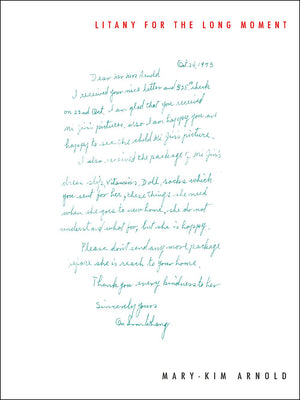 LITANY FOR THE LONG MOMENT
Oct 26, 1973
Dear Mr Mrs Arnold
I received your nice letter and $25.00 check
on 22nd Oct. I am glad that you received
Mi Jin's pictures. also I am happy you are
happy to see the child Mi Jin's picture.
I also received the package of Mi Jin's
dress slip, vitamins, Doll, socks which
you sent for her, these things she need
when she goes to new home, she do not
understand what for, but she is happy.
Please don't send any more package
before she is reach to your home.
Thank you every kindness to her
Sincerely yours
MARY-KIM ARNOLD